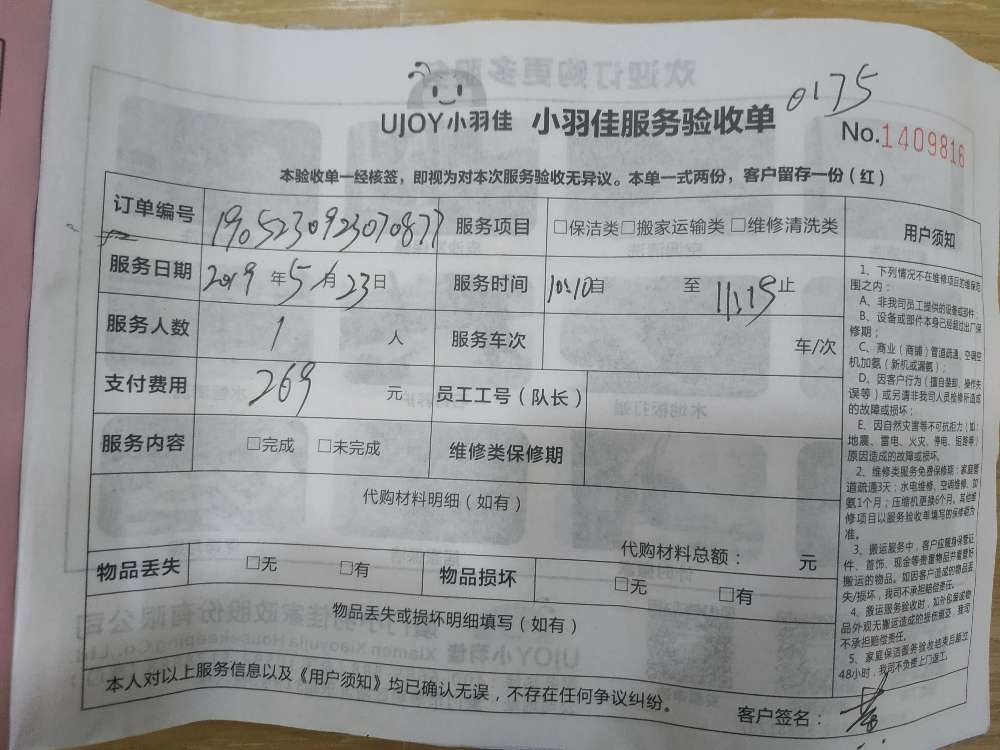 0175
UJOY小羽佳 小羽佳服务验收单
No.1409816
本验收单一经核签，即视为对本次服务验收无异议。本单一式两份，客户留存一份（红）
订单编号 190523092307087 服务项目 □保洁类□搬家运输类 □维修清洗类
服务日期 2019 年 5 月 23 日 服务时间 10:10 自 至 11:19 止
服务人数 1 人 服务车次 车/次
支付费用 269 元 员工工号（队长）
服务内容 □完成 □未完成 维修类保修期
代购材料明细（如有）
代购材料总额： 元
物品丢失 □无 □有 物品损坏 □无 □有
物品丢失或损坏明细填写（如有）
本人对以上服务信息以及《用户须知》均已确认无误，不存在任何争议纠纷。
客户签名：
用户须知
1、下列情况不在维修项目的维保范
围之内：
A、非我司员工提供的设备或部件；
B、设备或部件本身已经超过出厂保
修期；
C、商业（商铺）管道疏通、空调空
机加氨（新机或漏氨）；
D、因客户行为（擅自装卸、操作失
误等）或另请非我司人员检修所造成
的故障或损坏；
E、因自然灾害等不可抗拒力（如：
地震、雷电、火灾、停电、短路等）
原因造成的故障或损坏。
2、维修类服务免费保修期：家庭管
道疏通3天；水电维修、空调维修、加
氨1个月；压缩机更换6个月。其他维
修项目以服务验收单填写的保修期为
准。
3、搬运服务中，客户应随身保管证
件、首饰、现金等贵重物品并看管好
搬运的物品。如因客户造成的物品丢
失/损坏，我司不承担赔偿责任。
4、搬运服务验收时，如外包装或物
品外观无搬运造成的损伤痕迹，我司
不承担赔偿责任。
5、家庭保洁服务验收结束后超过
48小时，我司不负责上门返工。